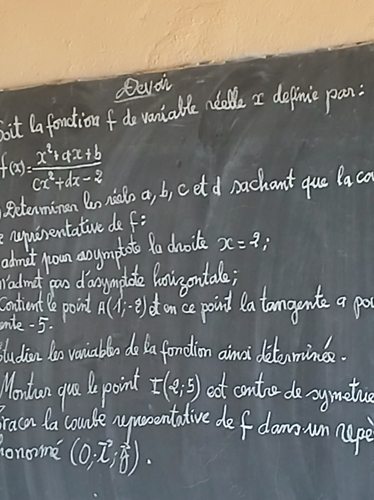 Devoir
Soit la fonction f de variable réelle x definie par:
f(x) = x²+ax+b / cx²+dx-2
Déterminer les réels a, b, c et d sachant que la cou
e représentative de f:
admet pour asymptote la droite x=2;
n'admet pas d'asymptote horizontale;
Contient le point A(1;-2) et en ce point la tangente a pou
ente -5.
tudier les variables de la fonction ainsi déterminée.
Montrer que le point I(2;5) est centre de symetrie
racer la courbe representative de f dans un repè
honormé (O; i; j).